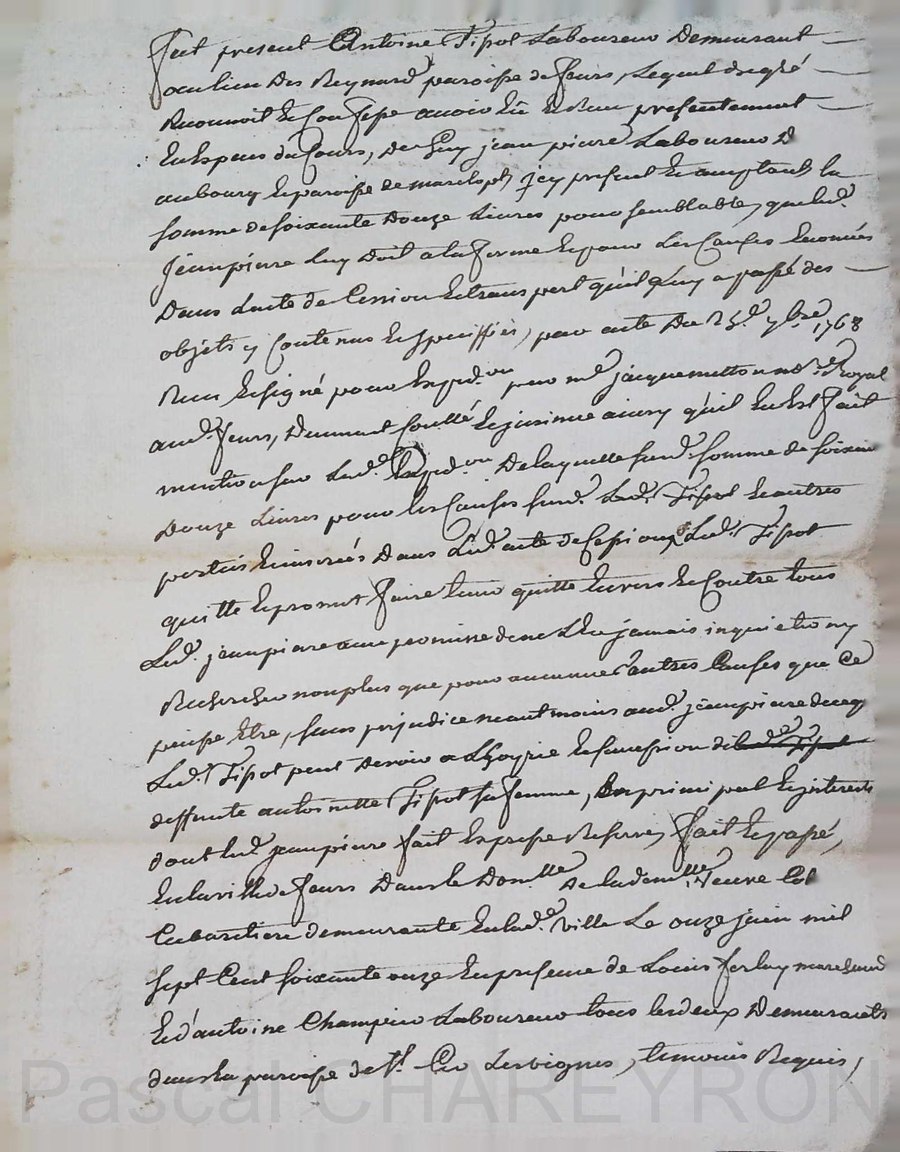 Fut present Antoine Tipot Laboureur Demeurant
au lieu Des Reynard paroisse de feurs, Lequel de gré
Reconnoit Et Confesse avoir Eü Et Reçu presentement
En Espece du Cours, de jean pierre Laboureur D
au bourg Et paroisse de marclopt, Icy present Et acceptant la
somme de soixante Douze Livres pour semblable, que led.
Jean pierre Luy Doit a la forme Et pour Les Causes Enoncées
Dans L'acte de Cession Et transport qu'il Luy a passé des
objets y Contenus Et Specifiés, par acte Du 25.e 7bre 1768
Reçu Et signé pour Expd.on par me jacquemetton no.re Royal
aud. feurs, Duement Controllé Et ainsy qu'il En Est fait
mention sur Lad.e Expd.on De laquelle susd. somme de soixante
Douze Livres pour les Causes susd. Led. Tipot
portées Et inserées Dans Led. acte de Cession, Led. Tipot
quitte Et promet faire tenir quitte Envers Et Contre tous
Led. jean pierre avec promesse de ne L'En jamais inquieter ny
Rechercher non plus que pour aucunes autres Causes que Ce
puisse Etre, sans prejudice neantmoins aud. jean pierre de ce que
Led. Tipot peut Devoir a L'hoyrie Et succession de
deffunte antoinette Tipot sa femme, En principal Et interets
dont Led. jean pierre fait Expresse Reserve, fait Et passé,
En la ville de feurs Dans le Domlle De la demlle veuve
Cabaretiere demeurante En lad.e ville Le onze juin mil
sept Cent soixante onze En presence de Louis ferlay marchand
Et d'antoine Champier Laboureur tous les deux Demeurants
dans la paroisse de St. Cir Les vignes, temoins Requis,
Pascal CHAREYRON